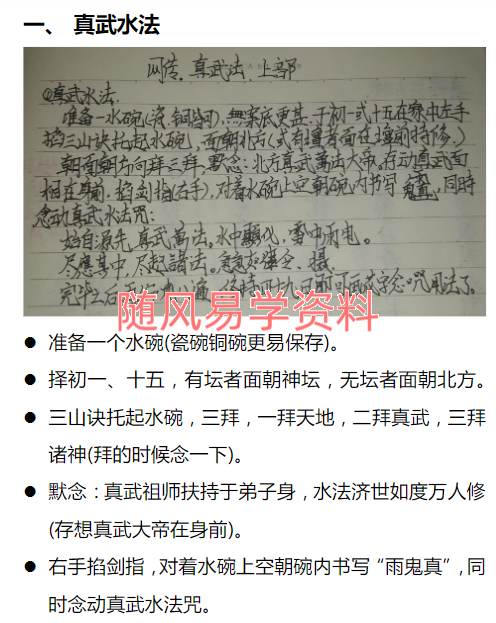 一、 真武水法
网传. 真武法. 上部
①真武水法.
准备一水碗(瓷,铜皆可),無家底更甚.于初一或十五在家中左手
掐三山诀托起水碗,面朝北方(或有壇者面在壇前持修.)
朝面朝方向拜三拜,默念:北方真武萬法大帝.存动真武面
相在身前,掐剑指(右手),对着水碗上空朝碗内书写 同时
念动真武水法咒:
始自源先,真武萬法,水中 雷中雨电。
尽應其中,尽起諸法。
完毕之后
随风易学资料
● 准备一个水碗(瓷碗铜碗更易保存)。
● 择初一、十五，有坛者面朝神坛，无坛者面朝北方。
● 三山诀托起水碗，三拜，一拜天地，二拜真武，三拜
诸神(拜的时候念一下)。
● 默念：真武祖师扶持于弟子身，水法济世如度万人修
(存想真武大帝在身前)。
● 右手掐剑指，对着水碗上空朝碗内书写“雨鬼真”，同
时念动真武水法咒。